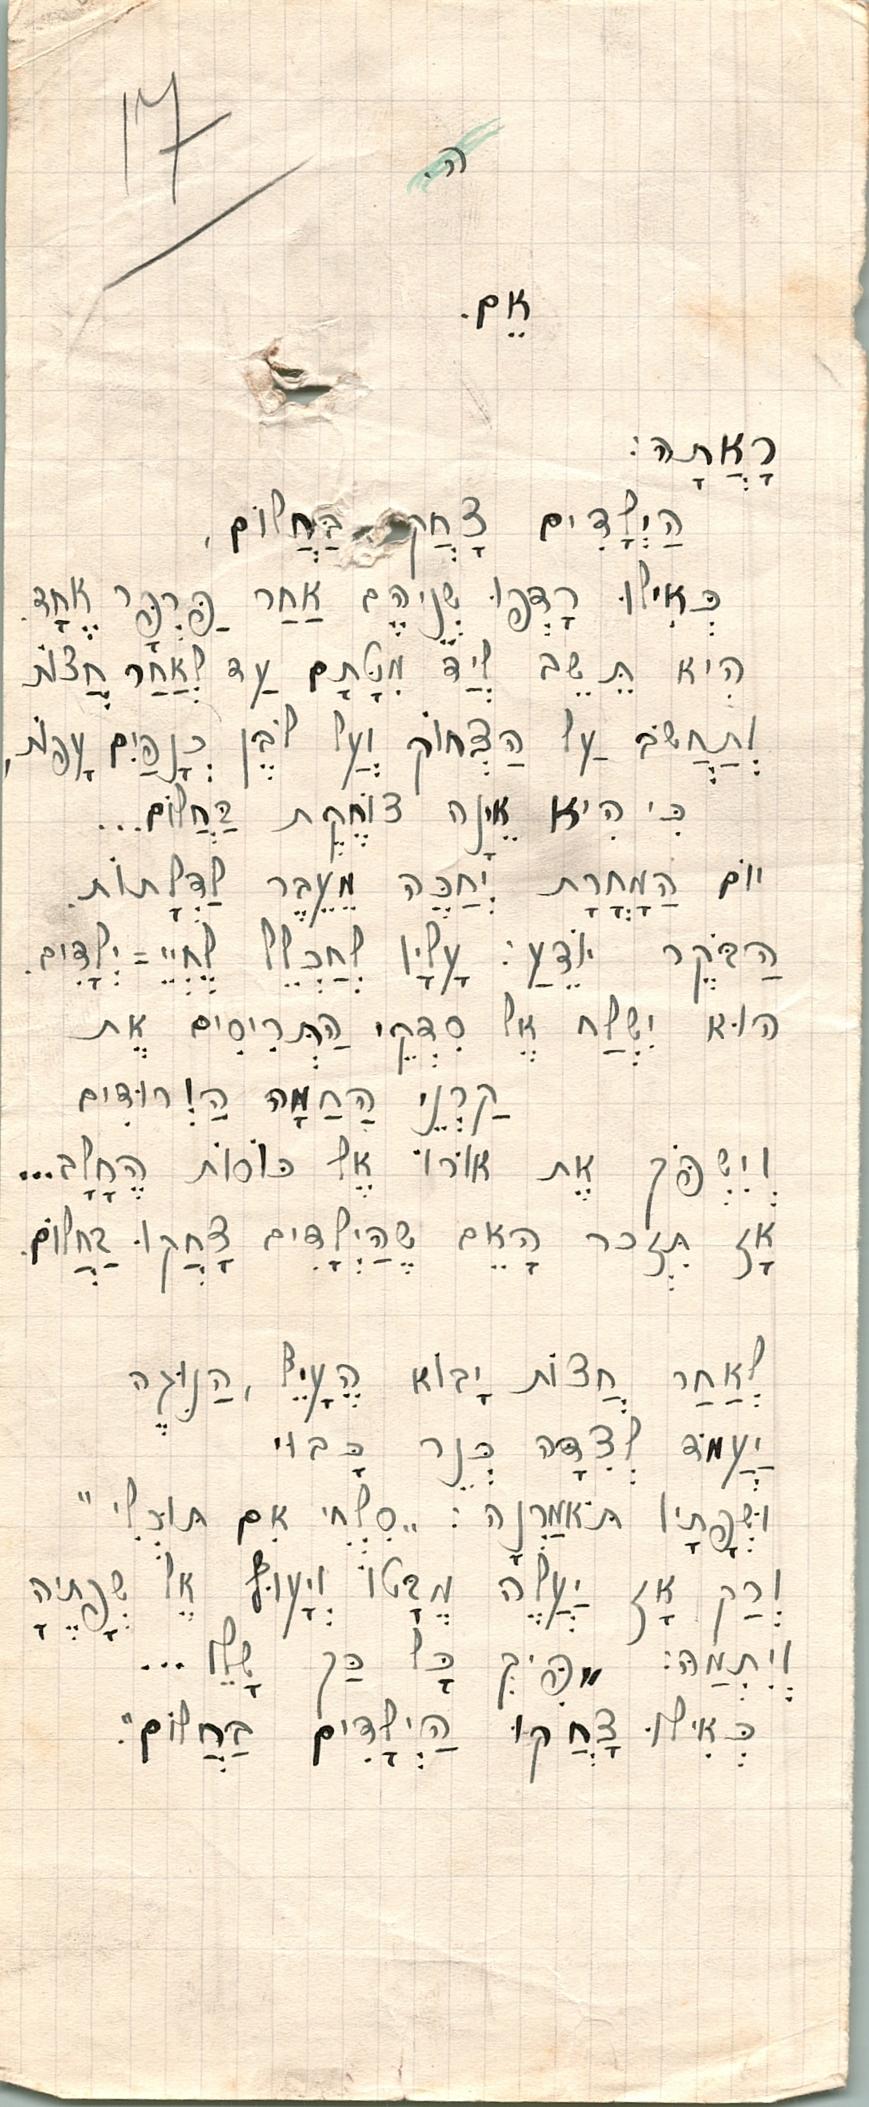 17
ה.
אֵם.
רָאֲתָה:
הַיְלָדִים צָחֲקוּ בַּחֲלוֹם,
כְּאִילוּ רָדְפוּ שְׁנֵיהֶם אַחַר פַּרְפָּר אֶחָד.
הִיא תֵּשֵׁב לְיַד מִטָּתָם עַד לְאַחַר חֲצוֹת
וְתַחֲשֹׁב עַל הַצְּחוֹק וְעַל לוֹבֶן כְּנָפַיִם עָפוֹת,
כִּי הִיא אֵינָהּ צוֹחֶקֶת בַּחֲלוֹם...
יוֹם הַמָּחֳרָת יְחַכֶּה מֵעֵבֶר לַדְּלָתוֹת.
הַבֹּקֶר יוֹדֵעַ: עָלָיו לְחַכְלֵל לֶחְיֵי=יְלָדִים.
הוּא יִשְׁלַח אֶל סִדְקֵי הַתְּרִיסִים אֶת
קַרְנֵי הַחַמָּה הַוְּרוּדִים
וְיִשְׁפֹּךְ אֶת אוֹרוֹ אֶל כּוֹסוֹת הֶחָלָב...
אָז תִּזְכֹּר הָאֵם שֶׁהַיְלָדִים צָחֲקוּ בַּחֲלוֹם.
לְאַחַר חֲצוֹת יָבוֹא הֶעָיֵף, הַנּוּגֶה
יַעֲמֹד לְצִדָּהּ כְּנֵר כָּבוּי
וּשְׂפָתָיו תֹּאמַרְנָה: „סִלְחִי אִם תּוּכְלִי"
וְרַק אָז יַעֲלֶה מַבָּטוֹ וְיָעוּף אֶל שְׂפָתֶיהָ
וְיִתְמַהּ: „פִּיךְ כָּל כַּךְ שָׁלֵו...
כְּאִילוּ צָחֲקוּ הַיְלָדִים בַּחֲלוֹם".